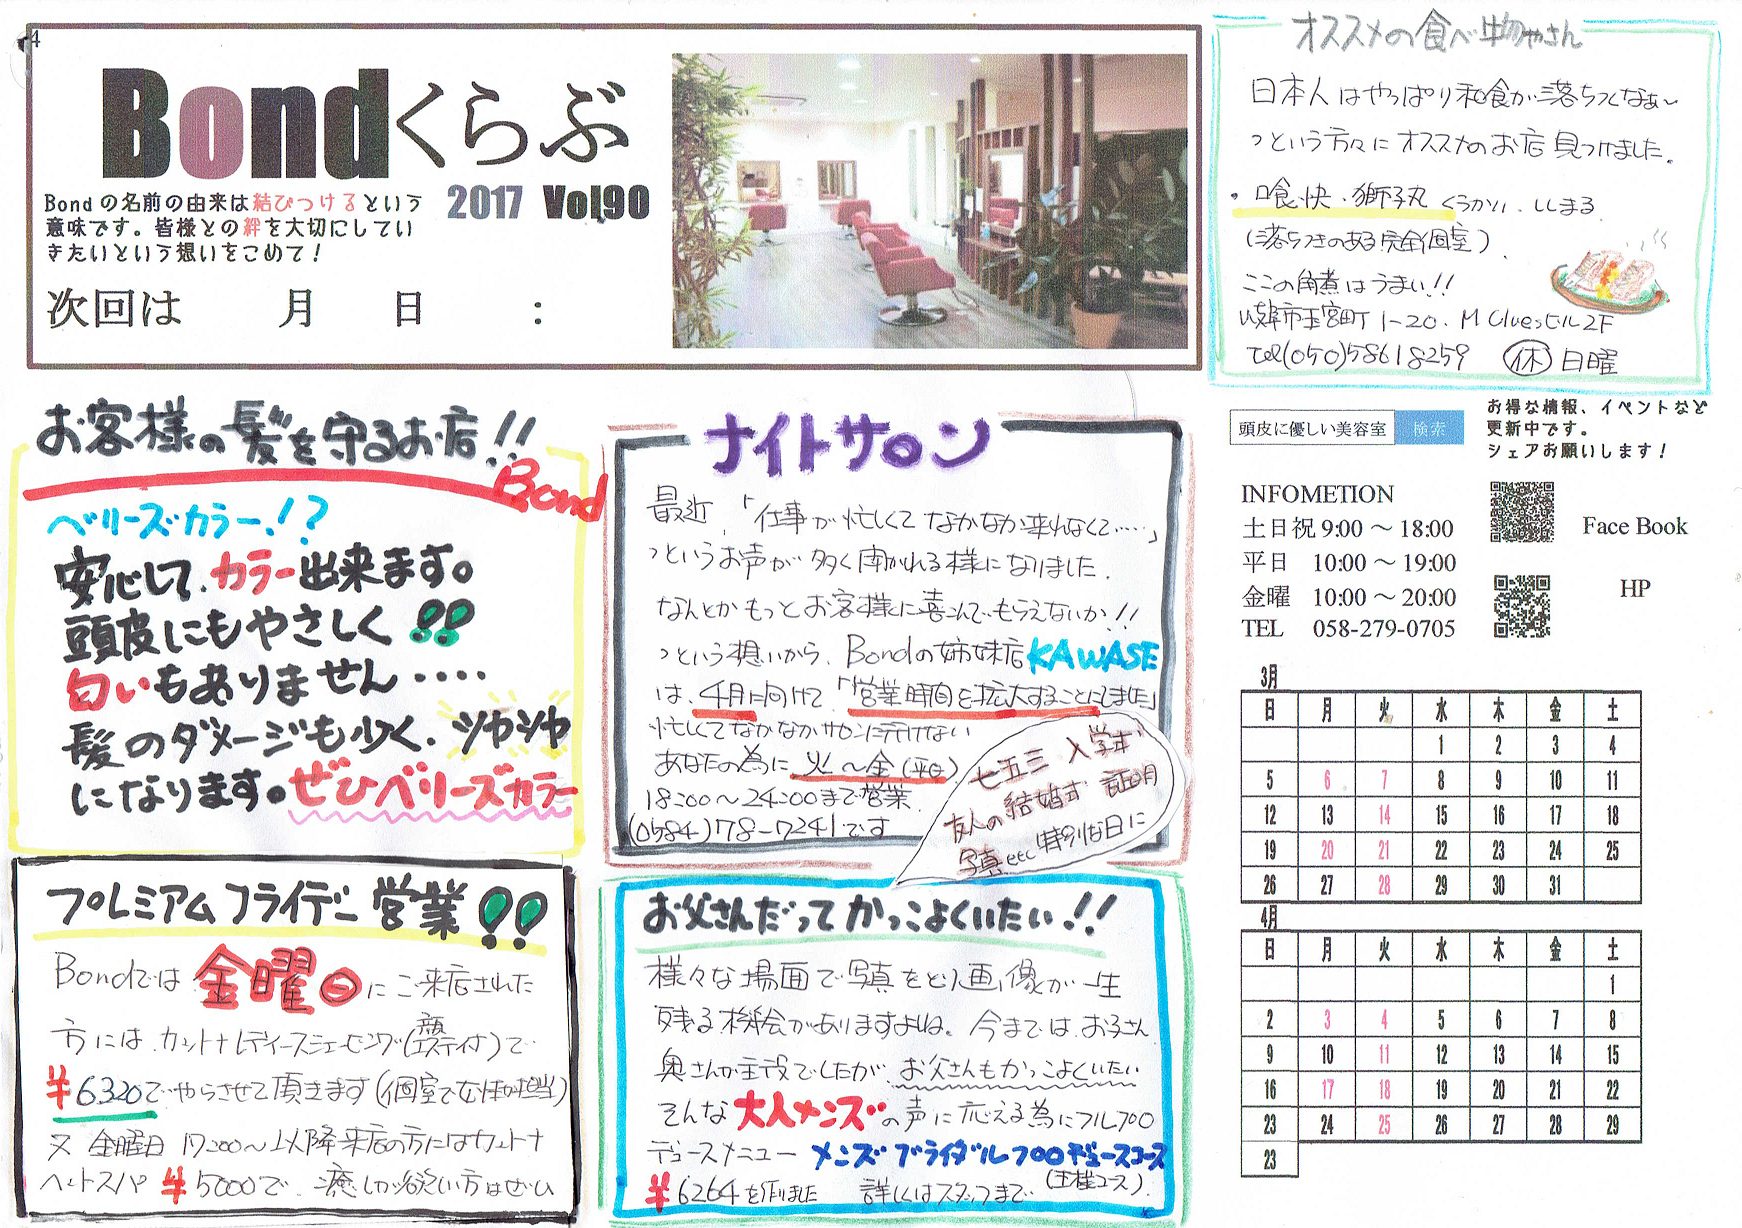 4
Bondくらぶ
2017 Vol,90
Bondの名前の由来は結びつけるという
意味です。皆様との絆を大切にしてい
きたいという想いをこめて！
次回は 月 日 ：
オススメの食べ物やさん
日本人はやっぱり和食が落ちつくなぁ～
っという方々にオススメのお店見つけました。
・喰快・獅子丸 くうかい.ししまる
(落ちつきのある完全個室)
ここの角煮はうまい!!
岐阜市玉宮町1-20. M Clueっビル2F
tel(050)58618259 休 日曜
頭皮に優しい美容室 検索
お得な情報、イベントなど
更新中です。
シェアお願いします！
INFOMETION
土日祝 9:00 ～ 18:00
平日 10:00 ～ 19:00
金曜 10:00 ～ 20:00
TEL 058-279-0705
Face Book
HP
お客様の髪を守るお店!!
Bond
ベリーズカラー!?
安心して、カラー出来ます。
頭皮にもやさしく!!
匂いもありません・・・・
髪のダメージも少く、ツヤツヤ
になります。ぜひベリーズカラー
ナイトサロン
最近、「仕事が忙しくてなかなか来れなくて……」
っというお声が多く聞かれる様になりました。
なんとかもっとお客様に喜んでもらえないか!!
っという想いから、Bondの姉妹店KAWASE
は、4月に向けて「営業時間を拡大することにしました」
忙しくてなかなかサロンに行けない
あなたの為に 火～金(平日)
18:00～24:00まで営業
(0584)78-7241です
七五三 入学式
友人の結婚式 証明
写真etc特別な日に
プレミアムフライデー営業!!
Bondでは金曜日にご来店された
方には、カット+レディースシェービング(顔エステ付)で
¥6320でやらさせて頂きます(個室で女性が担当)
又 金曜日 17:00～以降来店の方にはカット+
ヘッドスパ ¥5000で、癒しが欲しい方はぜひ
お父さんだってかっこよくいたい!!
様々な場面で写真をとり画像が一生
残る機会がありますよね。今までは、お子さん
奥さんが主役でしたが、お父さんもかっこよくいたい
そんな大人メンズの声に応える為にフルプロ
デュースメニュー メンズブライダルプロデュースコース
¥6264を作りました 詳しくはスタッフまで (王様コース)
3月
日 月 火 水 木 金 土
1 2 3 4
5 6 7 8 9 10 11
12 13 14 15 16 17 18
19 20 21 22 23 24 25
26 27 28 29 30 31
4月
日 月 火 水 木 金 土
1
2 3 4 5 6 7 8
9 10 11 12 13 14 15
16 17 18 19 20 21 22
23 24 25 26 27 28 29
23